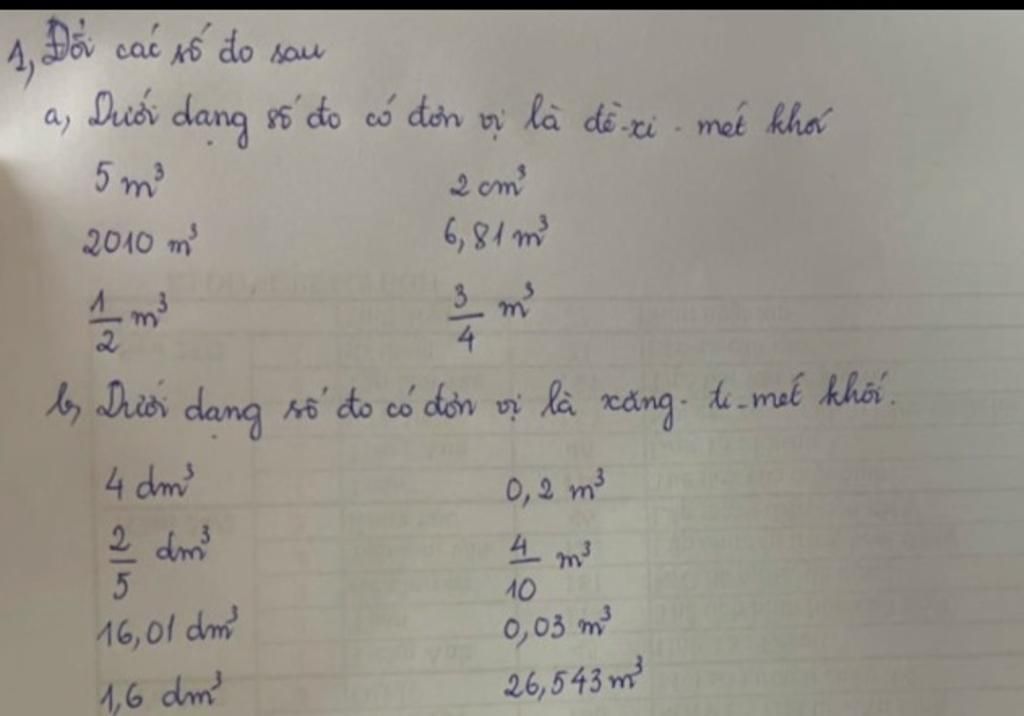 1, Đổi các số đo sau
a, Dưới dạng số đo có đơn vị là đề-xi-mét khối
5 m³ 2 cm³
2010 m³ 6,81 m³
1/2 m³ 3/4 m³
b, Dưới dạng số đo có đơn vị là xăng-ti-mét khối.
4 dm³ 0,2 m³
2/5 dm³ 4/10 m³
16,01 dm³ 0,03 m³
1,6 dm³ 26,543 m³